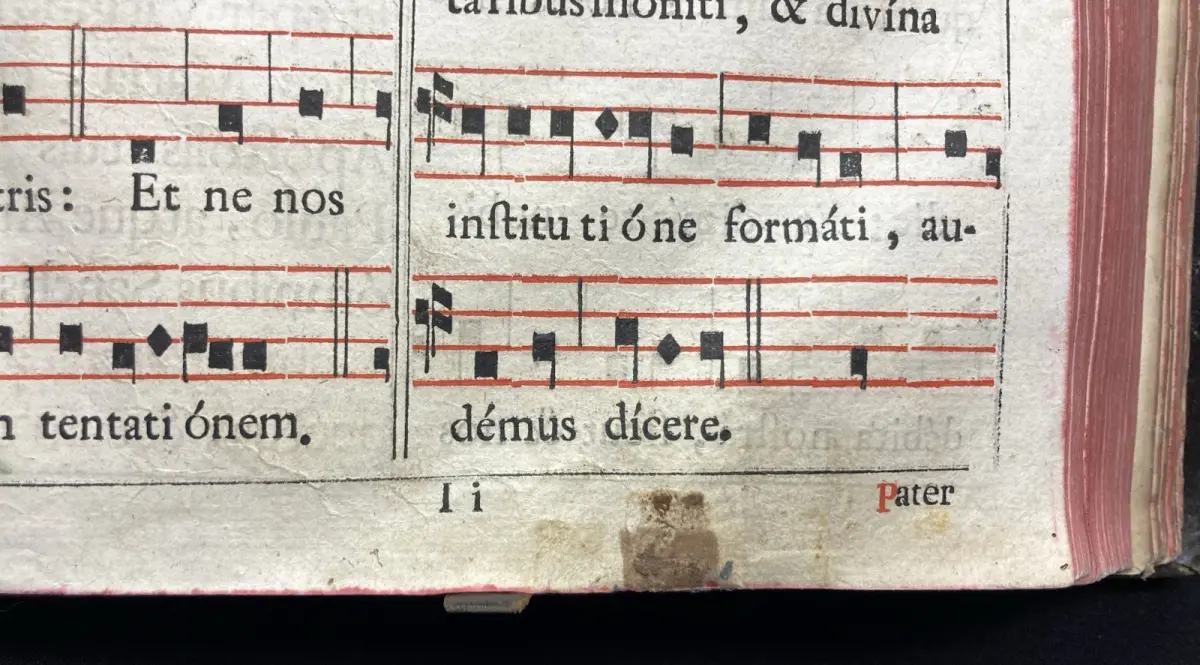 tris: Et ne nos
tentati ónem.
taribus moniti, & divína
inſtitu ti ó ne formáti, au-
démus dícere.
I i
Pater